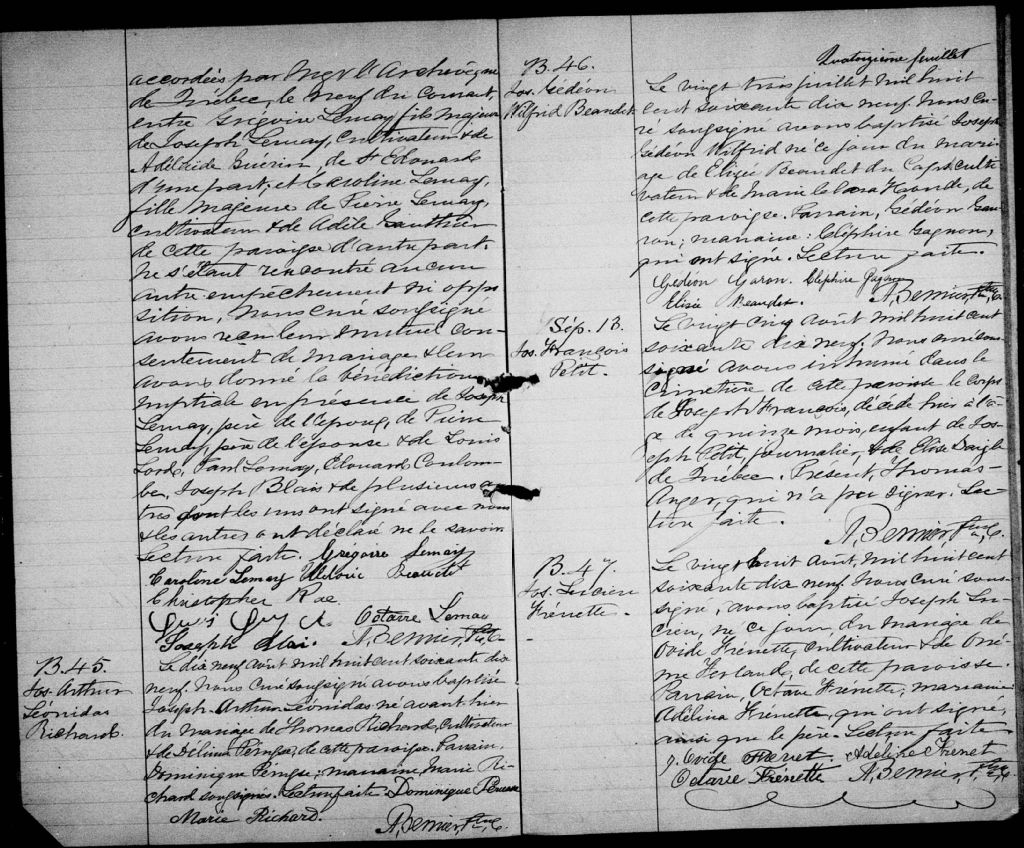 accordées par Mgr l'Archevêque
de Québec, le neuf du courant,
entre Grégoire Lemay fils majeur
de Joseph Lemay, cultivateur & de
Adélaïde Guérin, de St Edouard
d'une part; et Caroline Lemay,
fille majeure de Pierre Lemay,
cultivateur & de Adèle Gauthier
de cette paroisse d'autre part.
Ne s'étant rencontré aucun
autre empêchement ni oppo
sition, Nous curé soussigné
avons reçu leur mutuel con-
sentement de mariage & leur
avons donné la bénédiction
nuptiale en présence de Joseph
Lemay, père de l'époux, de Pierre
Lemay, père de l'épouse & de Louis
Lord, Paul Lemay, Edouard Coulom-
be, Joseph Blais & de plusieurs au
tres dont les uns ont signé avec nous
& les autres ont déclaré ne le savoir
Lecture faite. Grégoire Lemay
Caroline Lemay Beaudet
Christopher Rae
Octave Lemay
Joseph Blai. A. Bernier, Ptre, C.
B. 45.
Jos. Arthur
Léonidas
Richard.
Le dix neuf août mil huit cent soixante dix
neuf. Nous curé soussigné avons baptisé
Joseph Arthur Léonidas né avant hier
du mariage de Thomas Richard, cultivateur
& de Délima de cette paroisse. Parrain,
Dominique marraine, Marie Ri-
chard soussignés. Lecture faite. Dominique
Marie Richard.
A. Bernier, Ptre, C.
Quatorzième feuillet
B. 46.
Jos. Gédéon
Wilfrid Beaudet
Le vingt trois juillet mil huit
cent soixante dix neuf. Nous cu-
ré soussigné avons baptisé Joseph
Gédéon Wilfrid né ce jour du mari-
age de Elisée Beaudet du Cap culti-
vateur & de Marie de
cette paroisse. Parrain, Gédéon Ga-
ron; marraine: Cléphire Gagnon,
qui ont signé. Lecture faite.
Gédéon Garon. Cléphire Gagnon
Elisée Beaudet. A. Bernier, Ptre, C.
Sép. 13.
Jos. François
Petit.
Le vingt cinq août mil huit cent
soixante dix neuf. Nous curé sous-
signé avons inhumé dans le
cimetière de cette paroisse le corps
de Joseph François, décédé hier à l'â-
ge de quinze mois, enfant de Jos-
eph Petit, journalier, & de Elise Daigle
de Québec. Présent, Thomas
Auger, qui n'a pu signer. Lec-
ture faite.
A. Bernier, Ptre, C.
B. 47.
Jos. Lucien
Frénette.
Le vingt huit août, mil huit cent
soixante dix neuf. Nous curé sous-
signé, avons baptisé Joseph Lu-
cien, né ce jour du mariage de
Ovide Frénette, cultivateur & de
de cette paroisse.
Parrain, Octave Frénette, marraine
Adélina Frénette, qui ont signé,
ainsi que le père. Lecture faite
Ovide Frenet. Adeline Frenet
Octave Frénette A. Bernier, Ptre, C.